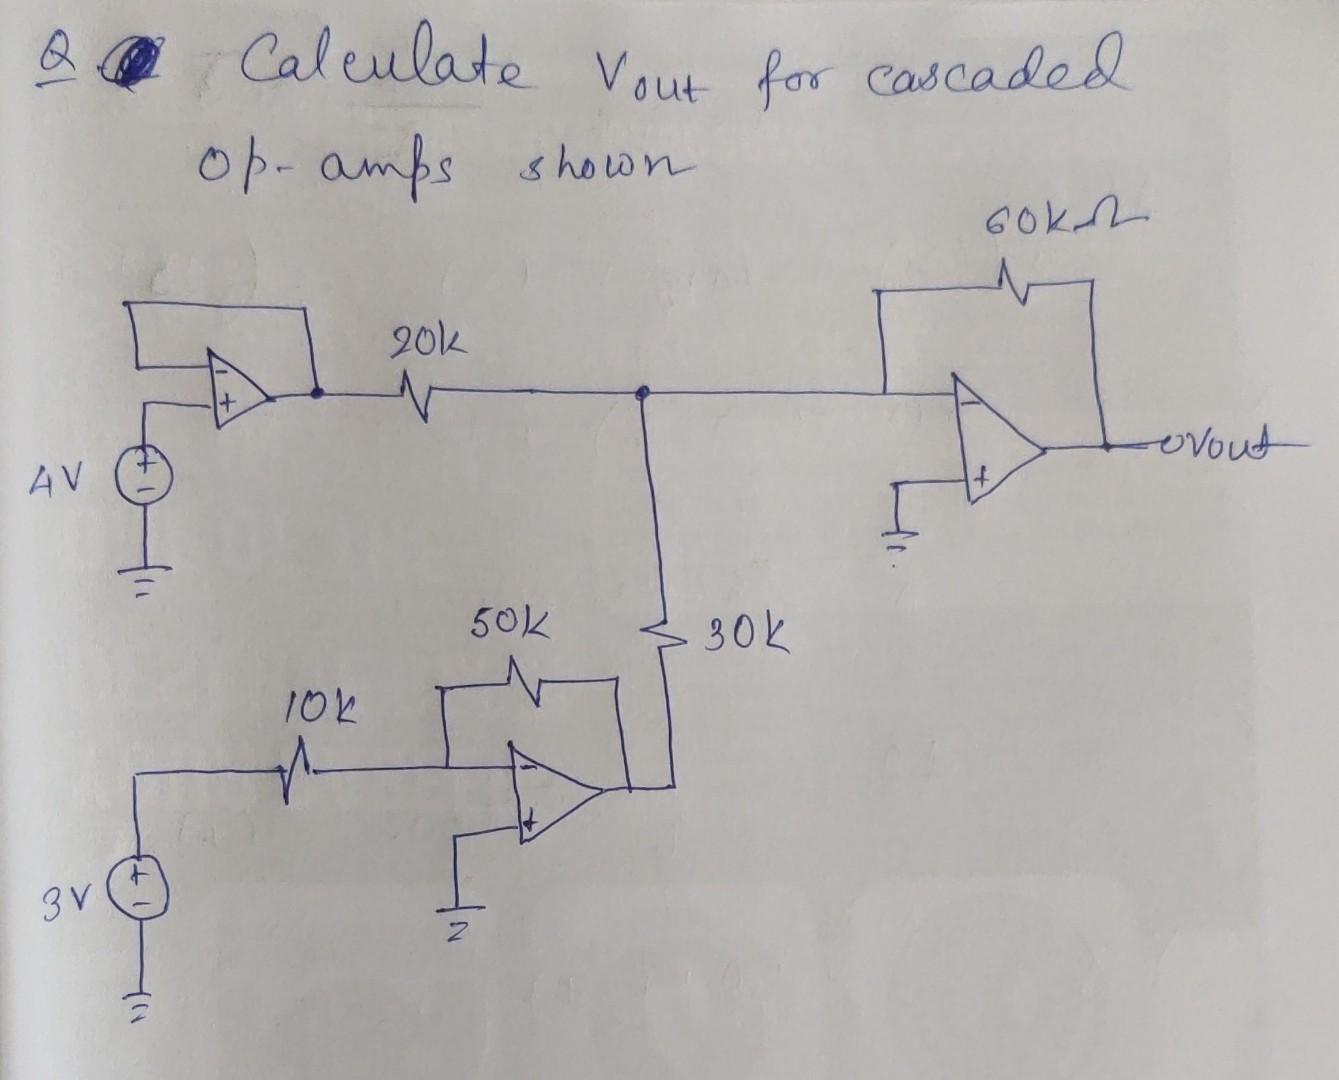 Q Calculate Vout for cascaded
Op-amps shown
60kΩ
20k
-
+
4V
+
-
-
+
Vout
50k
30k
10k
-
+
3V
+
-